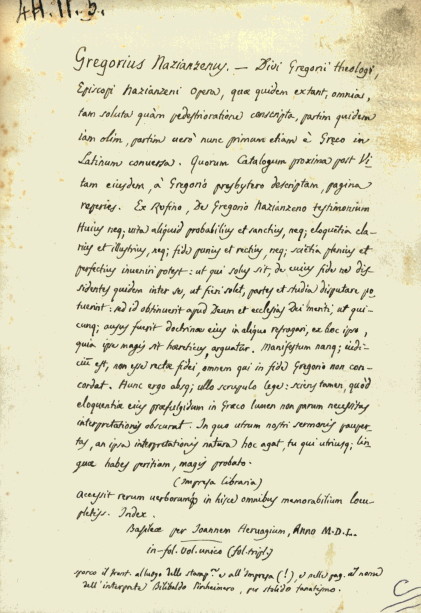 4H.II.5.
Gregorius Nazianzenus. — Divi Gregorii theologi,
Episcopi Nazianzeni Opera, quæ quidem extant, omnia,
tam soluta quàm pedestrioratione conscripta, partim quidem
iam olim, partim uerò nunc primum etiam è Græco in
Latinum conuersa. Quorum Catalogum proxima post Vi-
tam eiusdem, à Gregorio presbytero descriptam, pagina
reperies. Ex Rufino, De Gregorio Nazianzeno testimonium
Huius neq; vita aliquid probabilius et sanctius, neq; eloquētia cla-
rius et illustrius, neq; fide purius et rectius, neq; sciētia plenius et
perfectius inveniri potest: ut qui solus sit, de cuius fide ne dis-
sidentes quidem inter se, ut fieri solet, partes et studia disputare po-
tuerint: sed id obtinuerit apud Deum et ecclesias Dei meriti, ut qui-
cunq; ausus fuerit doctrinæ eius in aliquo refragari, ex hoc ipso,
quia ipse magis sit hæreticus, arguatur. Manifestum nanq; iudi-
ciū est, non esse rectæ fidei, omnem qui in fide Gregorio non con-
cordat. Hunc ergo absq; ullo scrupulo lege: sciens tamen, quod
eloquentiæ eius præfulgidum in Græco lumen non parum necessitas
interpretationis obscurat. In quo utrum nostri sermonis pauper-
tas, an ipsa interpretationis natura hoc agat, tu qui utriusq; lin
guæ habes peritiam, magis probato.
(Impresa libraria)
Accessit rerum uerborumq; in hisce omnibus memorabilium locu-
pletiss. Index.
Basileæ per Ioannem Heruagium, Anno M.D.L.
in-fol. vol. unico (fol. tripl.)
sporco il front. al luogo dello stamp.e e all'Impresa (!) e nelle pag. al nome
dell'interprete Bilibaldo Pirkeimero, per stolido fanatismo.